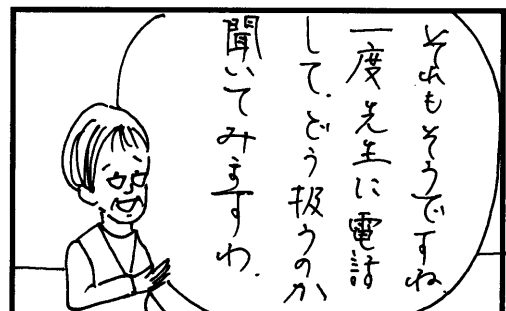 それもそうですね。
一度先生に電話
して、どう扱うのか
聞いてみますわ.